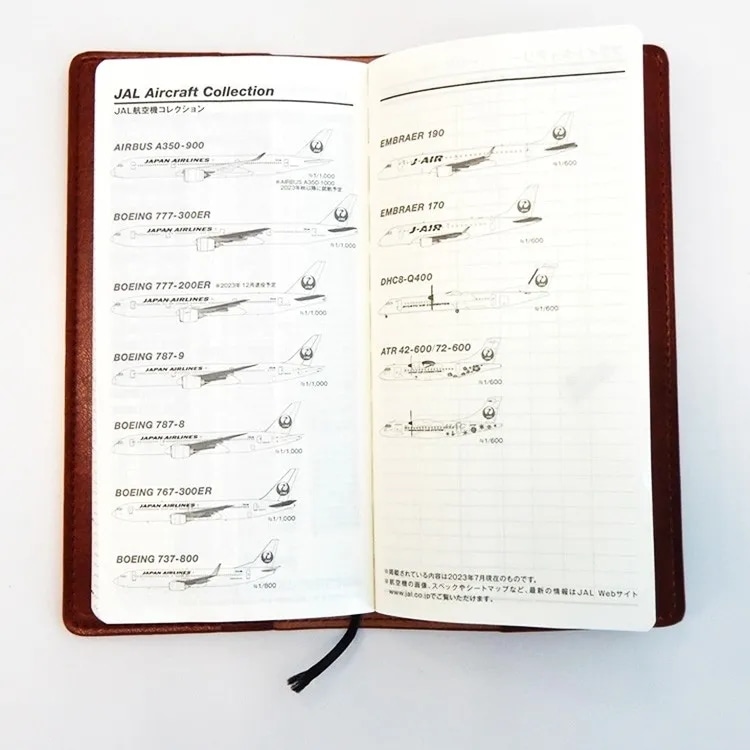 JAL Aircraft Collection
JAL航空機コレクション
AIRBUS A350-900
JAPAN AIRLINES
S1/1,000
※AIRBUS A350-1000
2023年秋以降に就航予定
BOEING 777-300ER
JAPAN AIRLINES
S1/1,000
BOEING 777-200ER ※2023年12月退役予定
JAPAN AIRLINES
S1/1,000
BOEING 787-9
JAPAN AIRLINES
S1/1,000
BOEING 787-8
JAPAN AIRLINES
S1/1,000
BOEING 767-300ER
JAPAN AIRLINES
S1/1,000
BOEING 737-800
JAPAN AIRLINES
S1/800
EMBRAER 190
J-AIR
S1/600
EMBRAER 170
J-AIR
S1/600
DHC8-Q400
S1/600
ATR 42-600/72-600
S1/600
S1/600
※掲載されている内容は2023年7月現在のものです。
※航空機の画像、スペックやシートマップなど、最新の情報はJAL Webサイト
www.jal.co.jpでご覧いただけます。